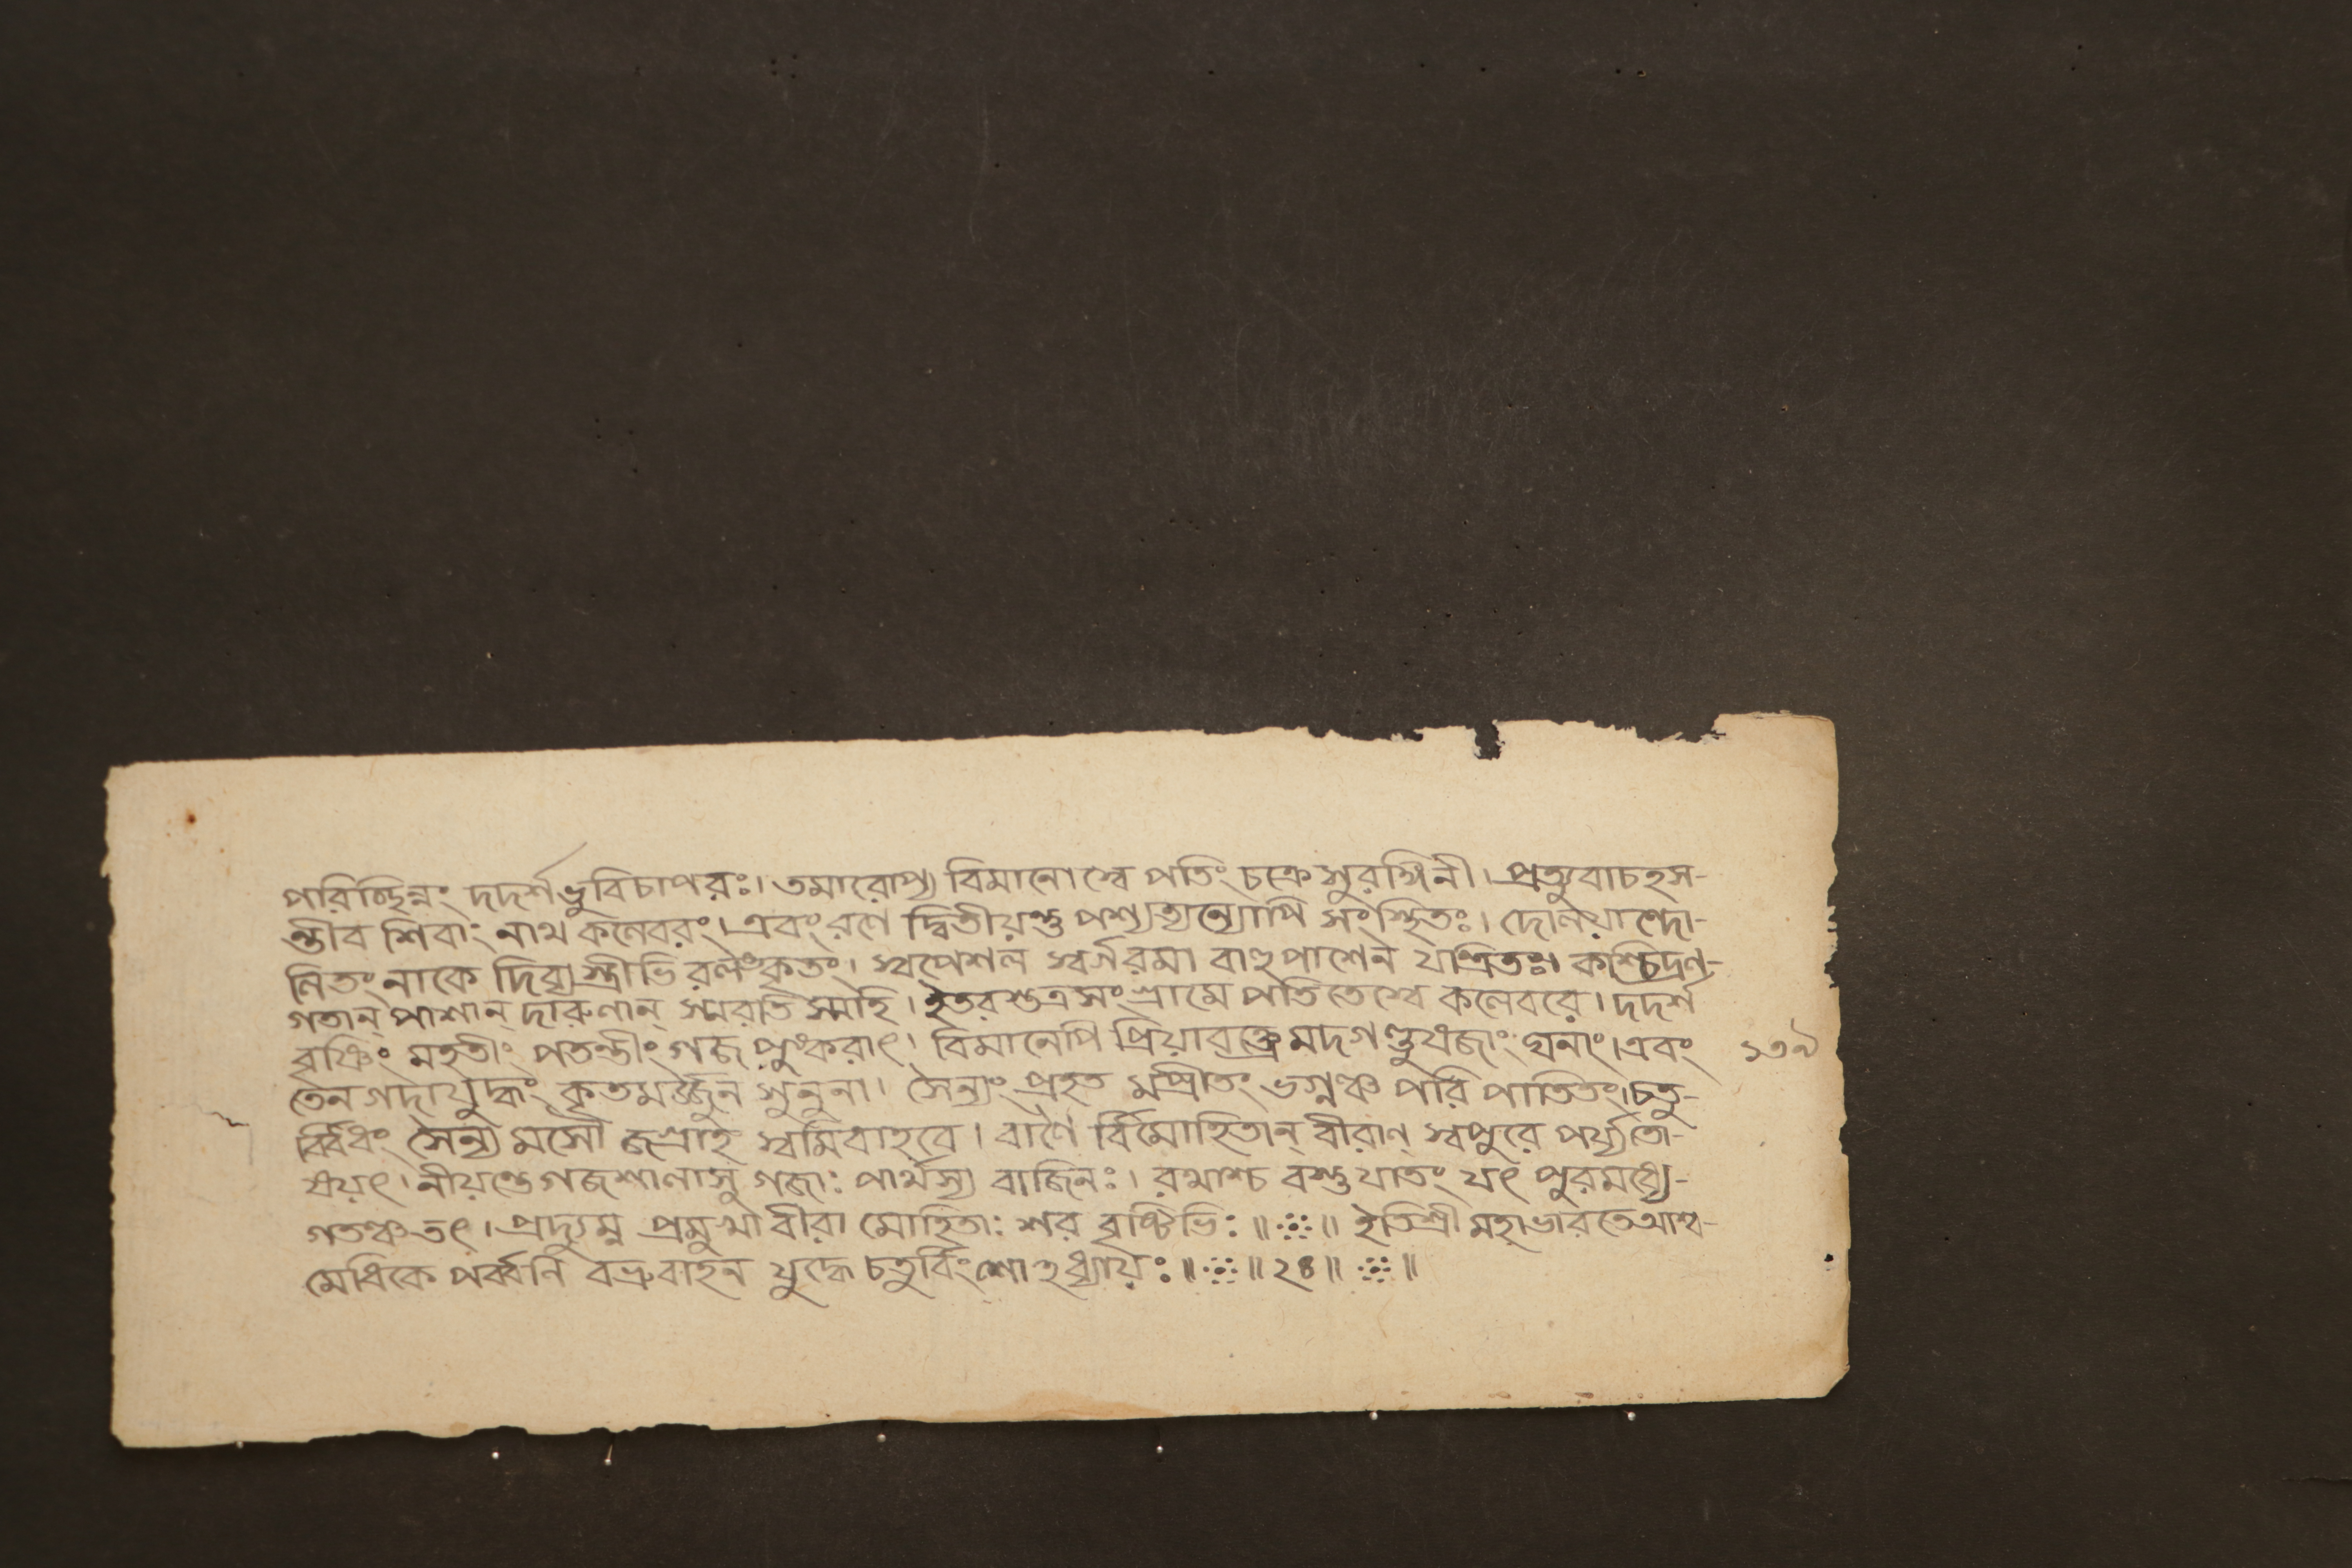 পরিচ্ছিন্নং দদর্শ ভুবিচাপরঃ। তমারোপ্য বিমানে স্বে পতিং চক্রে সুরঙ্গিনী। প্রত্যুবাচহস-
ন্তীব শিবাং নাথ কলেবরং। এবং রণে দ্বিতীয়স্তু পশ্যত্যন্যোপি সংস্থিতঃ। দোলয়ান্দো-
লিতং নাকে দিব্যস্ত্রীভি রলঙ্কৃতং। স্বপেশল স্বর্গরমা বাহুপাশেন যন্ত্রিতঃ। কশ্চিদ্রণ-
গতান্ পাশান্ দারুণান্ স্মরতি স্মহি। ইতরস্তুত্রসংগ্রামে পতিতেস্বে কলেবরে। দদর্শ
বৃষ্টিং মহতীং পতন্তীং গজপুংকরাৎ। বিমানেপি প্রিয়াবক্ত্রে মদগণ্ডুষজাং ঘনাং। এবং
তেন গদাযুদ্ধং কৃতমর্জ্জুন সুনুনা। সৈন্যং প্রহত ভগ্নঞ্চ পরি পাতিতং। চতু-
র্ব্বিধং সৈন্য মসৌ জগ্রাহ স্বমিবাহবে। বাণৈ র্বিমোহিতান্ বীরাণ্ স্বপুরে পর্য্যতো-
ষয়ৎ। নীয়ন্তে গজশালাসু গজাঃ পার্থস্য বাজিনঃ। রথাশ্চ বস্তুযাতং যৎ পুরমধ্যে-
গতঞ্চ তৎ। প্রদ্যুম্ন প্রমুখা বীরা মোহিতাঃ শর বৃষ্টিভিঃ॥ ॥ ইতি শ্রী মহাভারতে আশ্ব-
মেধিকে পর্ব্বনি বভ্রুবাহন যুদ্ধে চতুর্বিংশোঽধ্যায়ঃ॥ ॥ ২৪॥ ॥
১৩৯